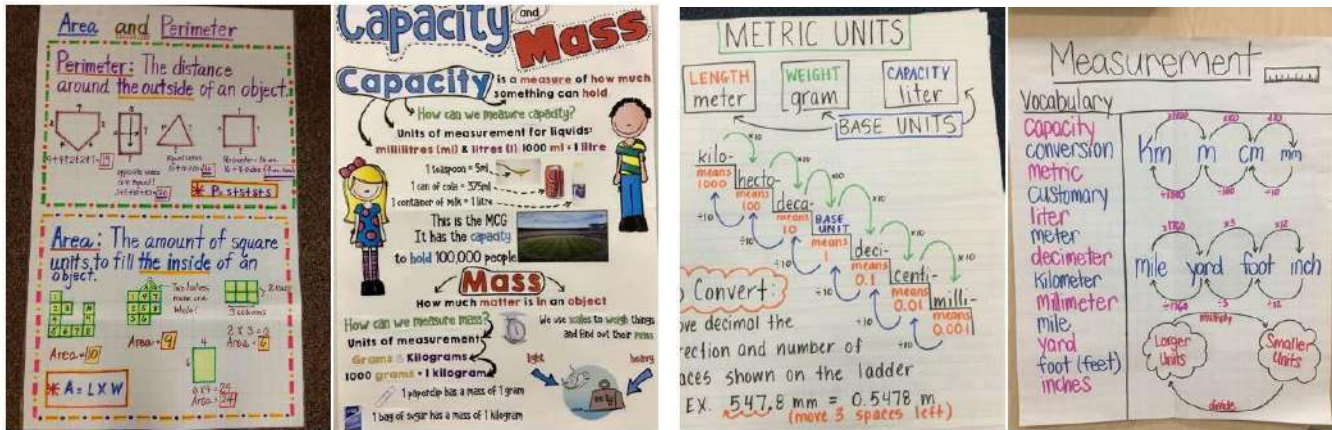 Area and Perimeter
Perimeter: The distance
around the outside of an object.
opposite sides
are equal!
* P = s+s+s+s
Area: The amount of square
units to fill the inside of an
object.
Two halves
make one
whole!
2 rows
3 columns
Area = 10
Area = 9
2 x 3 = 6
Area = 6
4
6
6x4=24
Area = 24
* A = L x W
Capacity and
Mass
Capacity is a measure of how much
something can hold
How can we measure capacity?
Units of measurement for liquids:
millilitres (ml) & litres (l) 1000 ml = 1 litre
1 teaspoon = 5ml
1 can of cola = 375ml
1 container of milk = 1 litre
This is the MCG
It has the capacity
to hold 100,000 people
Mass
How much matter is in an object
How can we measure mass?
Units of measurement:
Grams & Kilograms
1000 grams = 1 kilogram
1 paperclip has a mass of 1 gram
1 bag of sugar has a mass of 1 kilogram
We use scales to weigh things
and find out their mass
light
heavy
METRIC UNITS
LENGTH
meter
WEIGHT
gram
CAPACITY
liter
BASE UNITS
kilo-
means
1000
hecto-
means
100
deca-
means
10
BASE
UNIT
means
1
deci-
means
0.1
centi-
means
0.01
milli-
means
0.001
x10
x10
x10
x10
x10
x10
÷10
÷10
÷10
÷10
÷10
Convert:
decimal the
and number of
shown on the ladder
EX. 547.8 mm = 0.5478 m
(move 3 spaces left)
Measurement
Vocabulary
capacity
conversion
metric
customary
liter
meter
decimeter
kilometer
millimeter
mile
yard
foot (feet)
inches
x1000
x100
x10
km m cm mm
÷1000
÷100
÷10
x1760
x3
x12
mile yard foot inch
÷1760
÷3
÷12
multiply
Larger
Units
Smaller
Units
divide